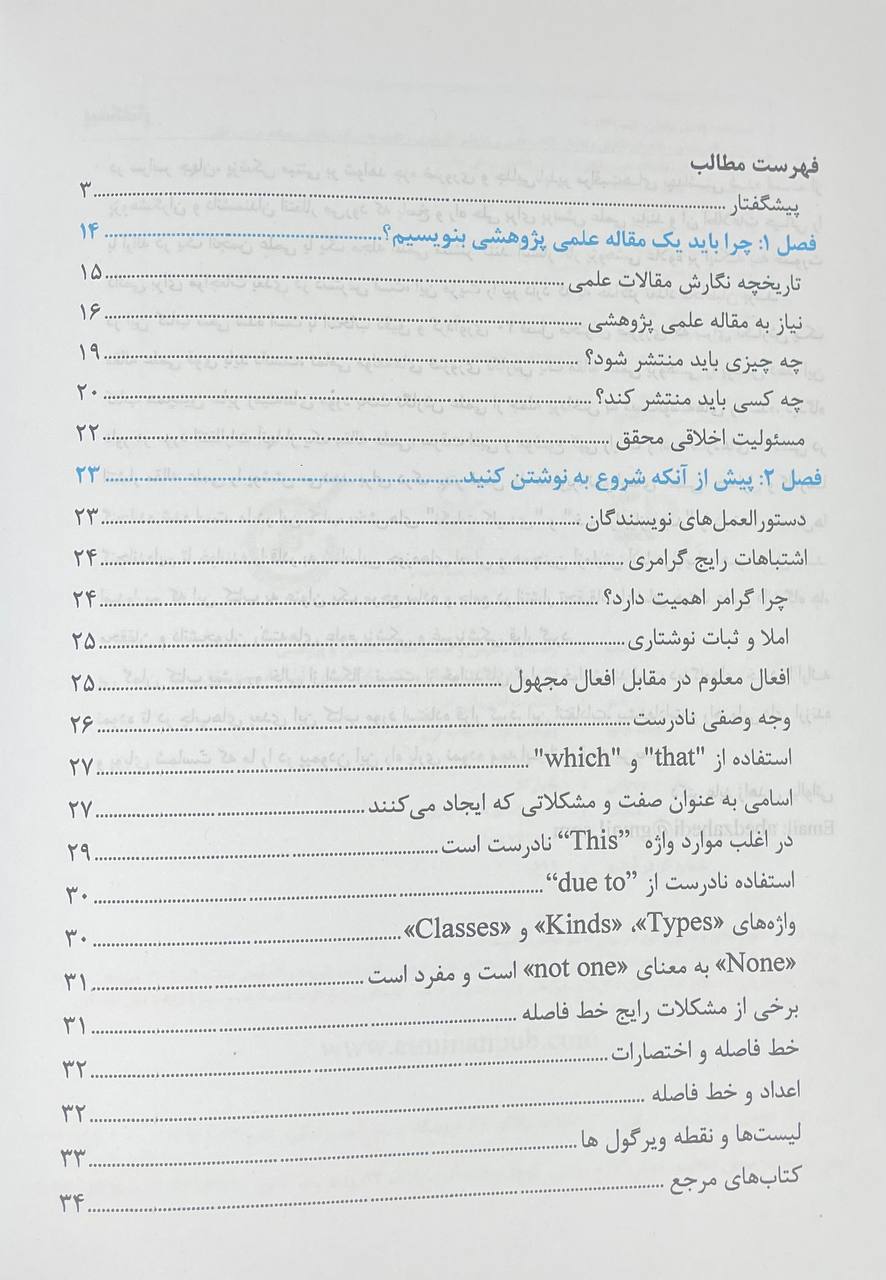 فهرست مطالب
پیشگفتار ........ ۳
فصل ۱: چرا باید یک مقاله علمی پژوهشی بنویسیم؟ ........ ۱۴
تاریخچه نگارش مقالات علمی ........ ۱۵
نیاز به مقاله علمی پژوهشی ........ ۱۶
چه چیزی باید منتشر شود؟ ........ ۱۹
چه کسی باید منتشر کند؟ ........ ۲۰
مسئولیت اخلاقی محقق ........ ۲۲
فصل ۲: پیش از آنکه شروع به نوشتن کنید ........ ۲۳
دستورالعمل‌های نویسندگان ........ ۲۳
اشتباهات رایج گرامری ........ ۲۴
چرا گرامر اهمیت دارد؟ ........ ۲۴
املا و ثبات نوشتاری ........ ۲۵
افعال معلوم در مقابل افعال مجهول ........ ۲۵
وجه وصفی نادرست ........ ۲۶
استفاده از "that" و "which" ........ ۲۷
اسامی به عنوان صفت و مشکلاتی که ایجاد می‌کنند ........ ۲۷
در اغلب موارد واژه “This” نادرست است ........ ۲۹
استفاده نادرست از “due to” ........ ۳۰
واژه‌های «Types»، «Kinds» و «Classes» ........ ۳۰
«None» به معنای «not one» است و مفرد است ........ ۳۱
برخی از مشکلات رایج خط فاصله ........ ۳۱
خط فاصله و اختصارات ........ ۳۲
اعداد و خط فاصله ........ ۳۲
لیست‌ها و نقطه ویرگول ها ........ ۳۳
کتاب‌های مرجع ........ ۳۴